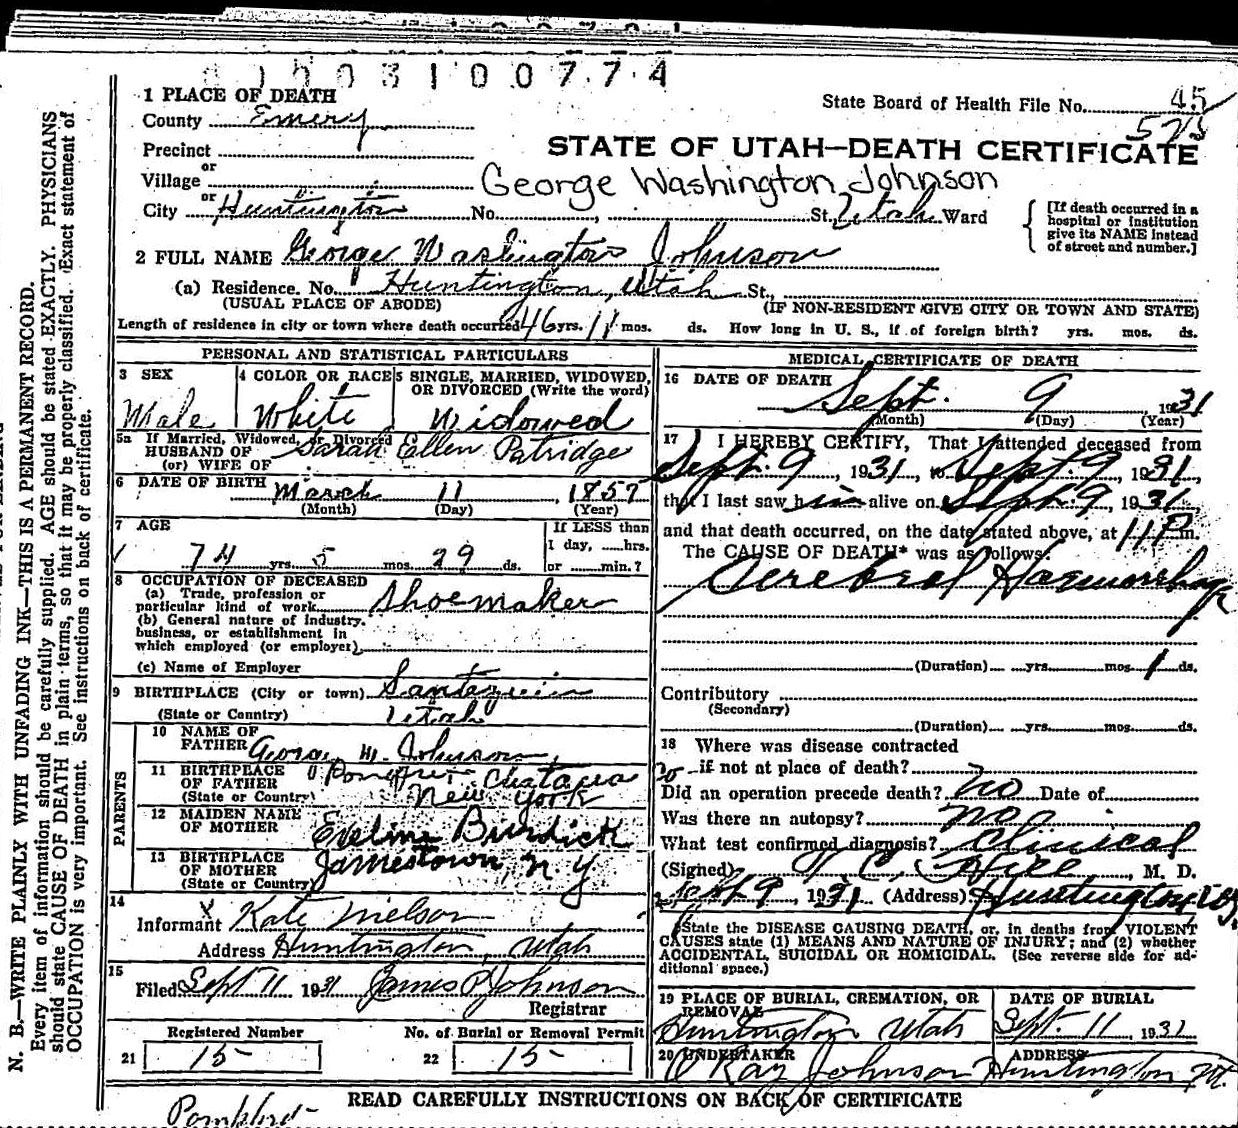 0 1 0 0 3 1 0 0 7 7 4
1 PLACE OF DEATH
State Board of Health File No. 45
County Emery
Precinct
or
STATE OF UTAH—DEATH CERTIFICATE
Village
George Washington Johnson
or
City Huntington No. , St., Utah Ward
[If death occurred in a hospital or institution give its NAME instead of street and number.]
2 FULL NAME George Washington Johnson
(a) Residence. No. Huntington, Utah St.,
(USUAL PLACE OF ABODE) (IF NON-RESIDENT GIVE CITY OR TOWN AND STATE)
Length of residence in city or town where death occurred 46 yrs. 11 mos. ds. How long in U. S., if of foreign birth? yrs. mos. ds.
PERSONAL AND STATISTICAL PARTICULARS
3 SEX 4 COLOR OR RACE 5 SINGLE, MARRIED, WIDOWED, OR DIVORCED (Write the word)
Male White Widowed
5a If Married, Widowed, or Divorced
HUSBAND OF Sarah Ellen Patridge
(or) WIFE OF
6 DATE OF BIRTH March 11, 1857
(Month) (Day) (Year)
7 AGE If LESS than
1 day, ......hrs.
74 yrs. 5 mos. 29 ds. or ......min.?
8 OCCUPATION OF DECEASED
(a) Trade, profession or
particular kind of work Shoemaker
(b) General nature of industry,
business, or establishment in
which employed (or employer)
(c) Name of Employer
9 BIRTHPLACE (City or town) Santaquin
(State or Country) Utah
PARENTS
10 NAME OF
FATHER George W. Johnson
11 BIRTHPLACE
OF FATHER
(State or Country) New York
12 MAIDEN NAME
OF MOTHER Eveline Burdick
13 BIRTHPLACE
OF MOTHER Jamestown, N Y
(State or Country)
14
Informant Kate Nielson
Address Huntington, Utah
15
Filed Sept 11 1931 James P Johnson
Registrar
Registered Number No. of Burial or Removal Permit
21 15 22 15
MEDICAL CERTIFICATE OF DEATH
16 DATE OF DEATH
Sept. 9, 1931
(Month) (Day) (Year)
17 I HEREBY CERTIFY, That I attended deceased from
Sept. 9, 1931, to Sept. 9, 1931,
that I last saw him alive on Sept. 9, 1931
and that death occurred, on the date stated above, at 11 P m.
The CAUSE OF DEATH* was as follows:
Cerebral Haemorrhage
(Duration) yrs. mos. 1 ds.
Contributory
(Secondary)
(Duration) yrs. mos. ds.
18 Where was disease contracted
if not at place of death?
Did an operation precede death? no Date of
Was there an autopsy? no
What test confirmed diagnosis? Clinical
(Signed) Hill, M. D.
Sept 9, 1931 (Address) Huntington
*State the DISEASE CAUSING DEATH, or, in deaths from VIOLENT
CAUSES state (1) MEANS AND NATURE OF INJURY; and (2) whether
ACCIDENTAL, SUICIDAL OR HOMICIDAL. (See reverse side for ad-
ditional space.)
19 PLACE OF BURIAL, CREMATION, OR REMOVAL DATE OF BURIAL
Huntington Utah Sept. 11, 1931
20 UNDERTAKER ADDRESS
Ray Johnson Huntington Ut.
READ CAREFULLY INSTRUCTIONS ON BACK OF CERTIFICATE
N. B.—WRITE PLAINLY WITH UNFADING INK—THIS IS A PERMANENT RECORD.
Every item of information should be carefully supplied. AGE should be stated EXACTLY. PHYSICIANS
should state CAUSE OF DEATH in plain terms, so that it may be properly classified. Exact statement of
OCCUPATION is very important. See instructions on back of certificate.